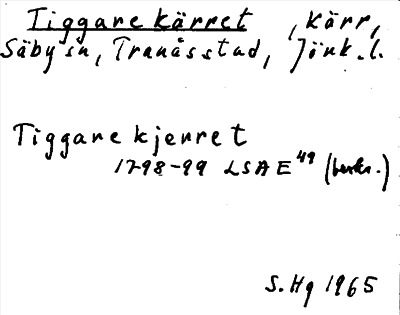 Tiggarekärret, kärr,
Säby sn, Tranås stad, Jönk.l.
Tiggarekjerret
1798-99 LSA E 49 (beskr.)
S. Hg 1965